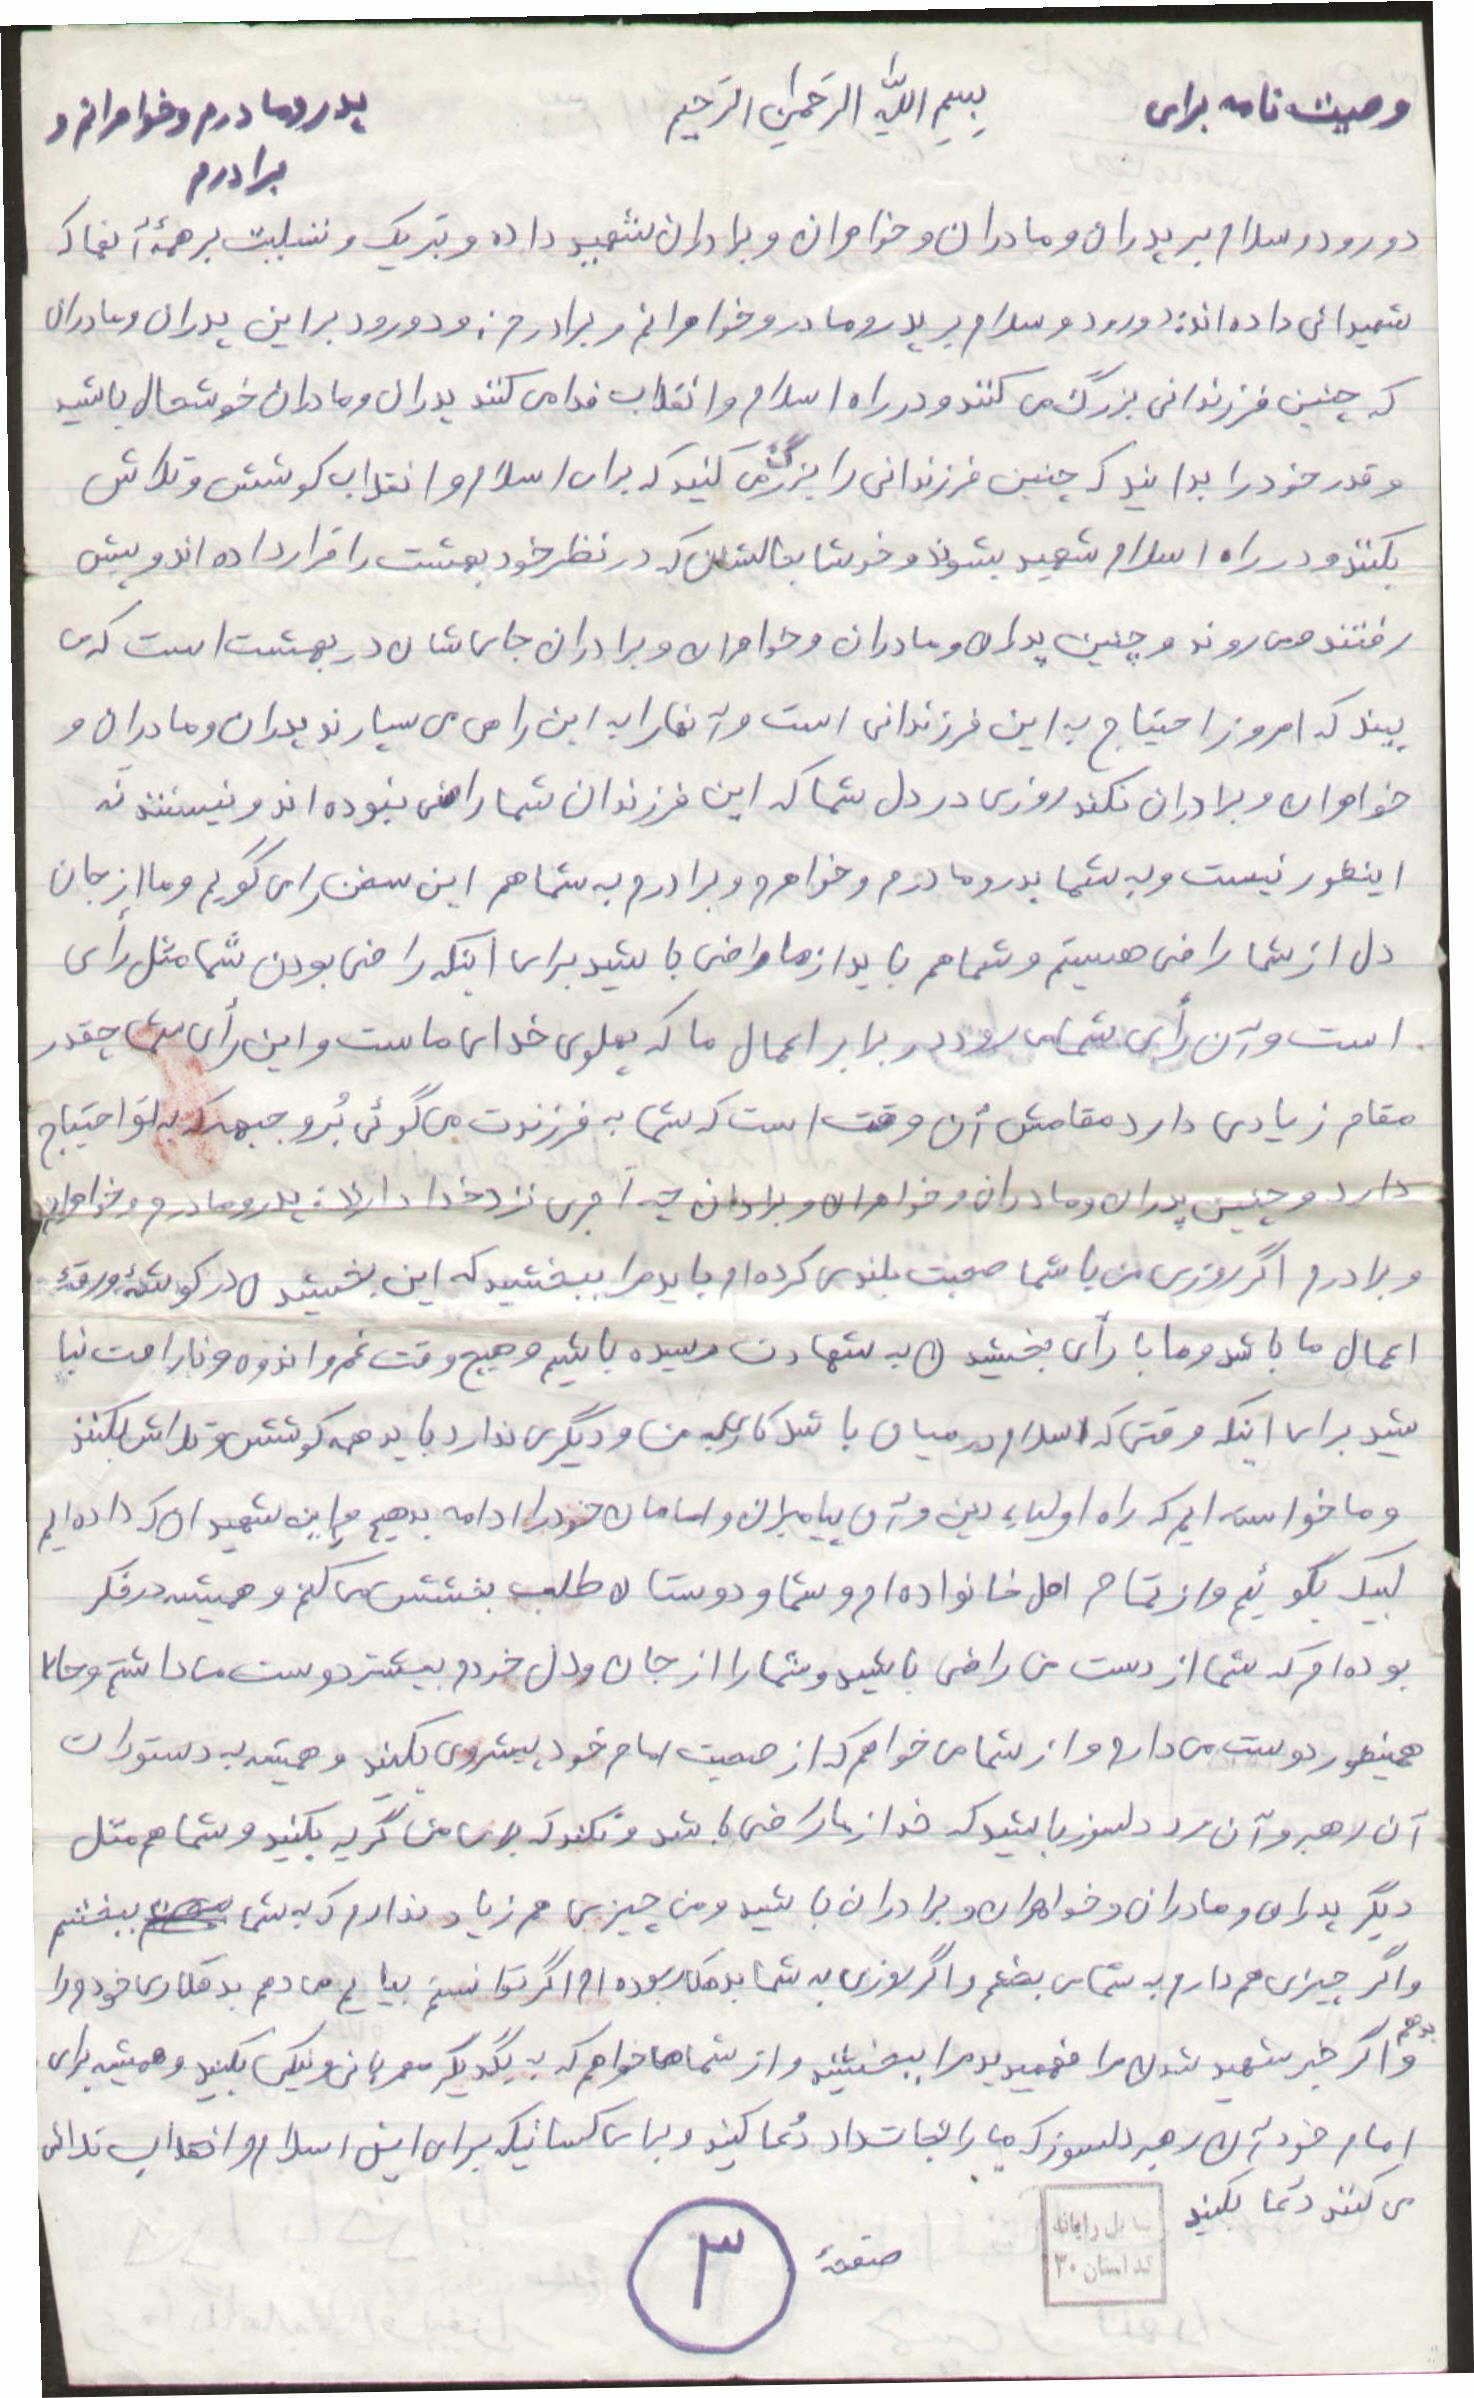 وصیت نامه برای بسم اللّه الرّحمن الرّحیم پدر و مادرم و خواهرانم و
برادرم
درود و سلام بر پدران و مادران و خواهران و برادران شهید داده و تبریک و تسلیت بر همهٔ آنها که
شهیدائی داده اند: دورود و سلام بر پدر و مادر و خواهرانم و برادرم: و دورود بر این پدران و مادران
که چنین فرزندانی بزرگ می کنند و در راه اسلام و انقلاب فدا می کنند پدران و مادران خوشحال باشید
و قدر خود را بدانید که چنین فرزندانی را بزرگ می کنید که برای اسلام و انقلاب کوشش و تلاش
بکنند و در راه اسلام شهید بشوند و خوشا بحالشان که در نظر خود بهشت را قرار داده اند و پیش
رفتند و می روند و چنین پدران و مادران و خواهران و برادران جای شان در بهشت است که می
بیند که امروز احتیاج به این فرزندانی است و آنها را به این راه می سپارند پدران و مادران و
خواهران و برادران نکند روزی در دل شما که این فرزندان شما راضی نبوده اند و نیستند نه
اینطور نیست و به شما پدر و مادرم و خواهرم و برادرم به شما هم این سخن را می گویم و ما از جان
دل از شما راضی هستیم و شما هم باید از ما راضی باشید برای اینکه راضی بودن شما مثل رأی
است و آن رأی شما می رود در برابر اعمال ما که پهلوی خدای ماست و این رأی شما چقدر
مقام زیادی دارد مقامش آن وقت است که شما به فرزندت می گوئی بُرو جبهه که به تو احتیاج
دارد و چنین پدران و مادران و خواهران و برادران چه اجری نزد خدا دارند: پدر و مادرم و خواهرانم
و برادرم اگر روزی من با شما صحبت بلندی کرده ام باید مرا ببخشید که این بخشید ن در گوشهٔ ورقهٔ
اعمال ما باشد و ما با رأی بخشید ن به شهادت رسیده باشیم و هیچ وقت غم و اندوه و ناراحت نبا
شید برای اینکه وقتی که اسلام در میان باشد کاری به من و دیگری ندارد باید همه کوشش و تلاش بکنند
و ما خواسته ایم که راه اولیاء دین و آن پیامبران و امامان خود را ادامه بدهیم و این شهید ان که داده ایم
لبیک بگوئیم و از تمام اهل خانواده ام و شما و دوستان طلب بخشش می کنم و همیشه در فکر
بوده ام که شما از دست من راضی باشید و شما را از جان و دل خودم بیشتر دوست می داشتم و حالا
همینطور دوست می دارم و از شما می خواهم که از صحبت امام خود پیشروی بکنید و همیشه به دستورات
آن رهبر و آن مرد دلسوز باشید که خدا از ما راضی باشد و نکند که برای من گریه بکنید و شما هم مثل
دیگر پدران و مادران و خواهران و برادران باشید و من چیزی هم زیاد ندارم که به شما ببخشم
و اگر چیزی هم دارم به شما می بخشم و اگر روزی به شما بدهکار بوده ام اگر توانستم بیایم می دهم بدهکاری خودم را
بدهم
و اگر خبر شهید شدن مرا فهمیدید مرا ببخشید و از شما می خواهم که به یکدیگر مهربانی و نیکی بکنید و همیشه برای
امام خود آن رهبر دلسوز که ما را نجات داد دُعا کنید و برای کسانیکه برای این اسلام و انقلاب
می کنند دُعا بکنید
رایانه
کد استان ۳۰
صفحهٔ ۳